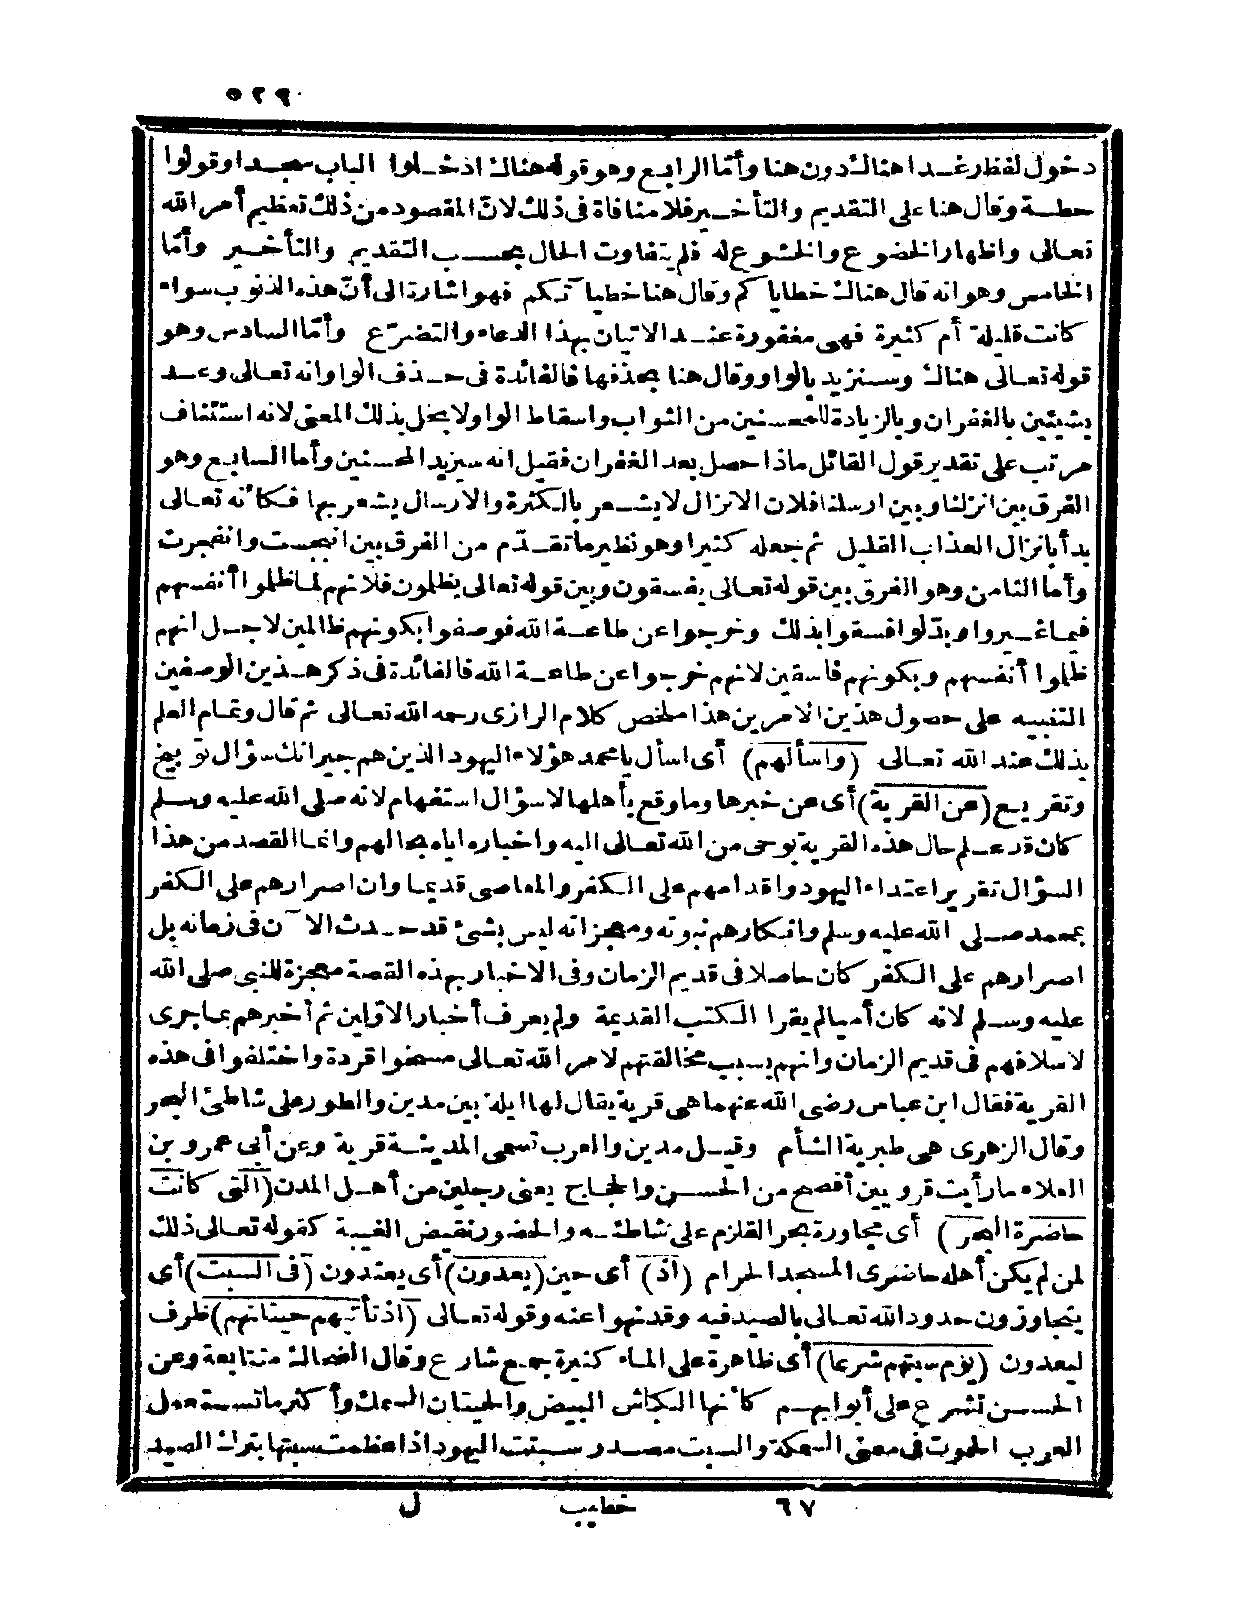 ٥٢٩
دخول لفظ رغدا هنالك دون هنا وأمّا الرابع وهو قوله هناك ادخلوا الباب سجدا وقولوا
حطة وقال هنا على التقديم والتأخير فلا منافاة فى ذلك لانّ المقصود من ذلك تعظيم أمر الله
تعالى واظهار الخضوع والخشوع له فلم يتفاوت الحال بحسب التقديم والتأخير وأمّا
الخامس وهو انه قال هناك خطاياكم وقال هنا خطيآ تكم فهو اشارة الى أنّ هذه الذنوب سواء
كانت قليلة أم كثيرة فهى مغفورة عند الاتيان بهذا الدعاء والتضرّع وأمّا السادس وهو
قوله تعالى هناك وسنزيد بالواو وقال هنا بحذفها فالفائدة فى حذف الواو انه تعالى وعد
بشيئين بالغفران وبالزيادة للمحسنين من الثواب واسقاط الواو لا يخل بذلك المعنى لانه استئناف
مرتب على تقدير قول القائل ماذا حصل بعد الغفران فقيل انه سيزيد المحسنين وأما السابع وهو
الفرق بين انزلنا وبين ارسلنا فلان الانزال لا يشعر بالكثرة والارسال يشعر بها فكأنه تعالى
بدأ بانزال العذاب القليل ثم جعله كثيرا وهو نظير ما تقدّم من الفرق بين انبجست وانفجرت
وأما الثامن وهو الفرق بين قوله تعالى يفسقون وبين قوله تعالى يظلمون فلانهم لما ظلموا أنفسهم
فيما غيروا وبدّلوا فسقوا بذلك وخرجوا عن طاعة الله فوصفوا بكونهم ظالمين لاجل انهم
ظلموا أنفسهم وبكونهم فاسقين لانهم خرجوا عن طاعة الله فالفائدة فى ذكر هذين الوصفين
التنبيه على حصول هذين الامرين هذا ملخص كلام الرازى رحمه الله تعالى ثم قال وتمام العلم
بذلك عند الله تعالى (واسألهم) أى اسأل يا محمد هؤلاء اليهود الذين هم جيرانك سؤال توبيخ
وتقريع (عن القرية) أى عن خبرها وما وقع بأهلها لا سؤال استفهام لانه صلى الله عليه وسلم
كان قد علم حال هذه القرية بوحى من الله تعالى اليه واخباره اياه بحالهم وانما القصد من هذا
السؤال تقرير اعتداء اليهود واقدامهم على الكفر والمعاصى قديما وان اصرارهم على الكفر
بمحمد صلى الله عليه وسلم وانكارهم نبوته ومعجزاته ليس بشئ قد حدث الا ٓن فى زمانه بل
اصرارهم على الكفر كان حاصلا فى قديم الزمان وفى الاخبار بهذه القصة معجزة للنبى صلى الله
عليه وسلم لانه كان أميا لم يقرا الكتب القديمة ولم يعرف أخبار الاوّلين ثم أخبرهم بما جرى
لاسلافهم فى قديم الزمان وانهم بسبب مخالفتهم لامر الله تعالى مسخوا قردة واختلفوا فى هذه
القرية فقال ابن عباس رضى الله عنهما هى قرية يقال لها ايلة بين مدين والطور على شاطئ البحر
وقال الزهرى هى طبرية الشأم وقيل مدين والعرب تسمى المدينة قرية وعن أبى عمرو بن
العلاء ما رأيت قرويين أفصح من الحسن والحجاج يعنى رجلين من أهل المدن (التى كانت
حاضرة البحر) أى مجاورة بحر القلزم على شاطئه والحضور نقيض الغيبة كقوله تعالى ذلك
لمن لم يكن أهله حاضرى المسجد الحرام (اذ) أى حين (يعدون) أى يعتدون (فى السبت) أى
يتجاوزون حدود الله تعالى بالصيد فيه وقد نهوا عنه وقوله تعالى (اذ تأتيهم حيتانهم) ظرف
ليعدون (يوم سبتهم شرعا) أى ظاهرة على الماء كثيرة جمع شارع وقال الضحاك متتابعة وعن
الحسن تشرع على أبوابهم كأنها الكباش البيض والحيتان السمك وأكثر ما تستعمل
العرب الحوت فى معنى السمكة والسبت مصدر سبتت اليهود اذا عظمت سبتها بترك الصيد
٦٧ خطيب ل